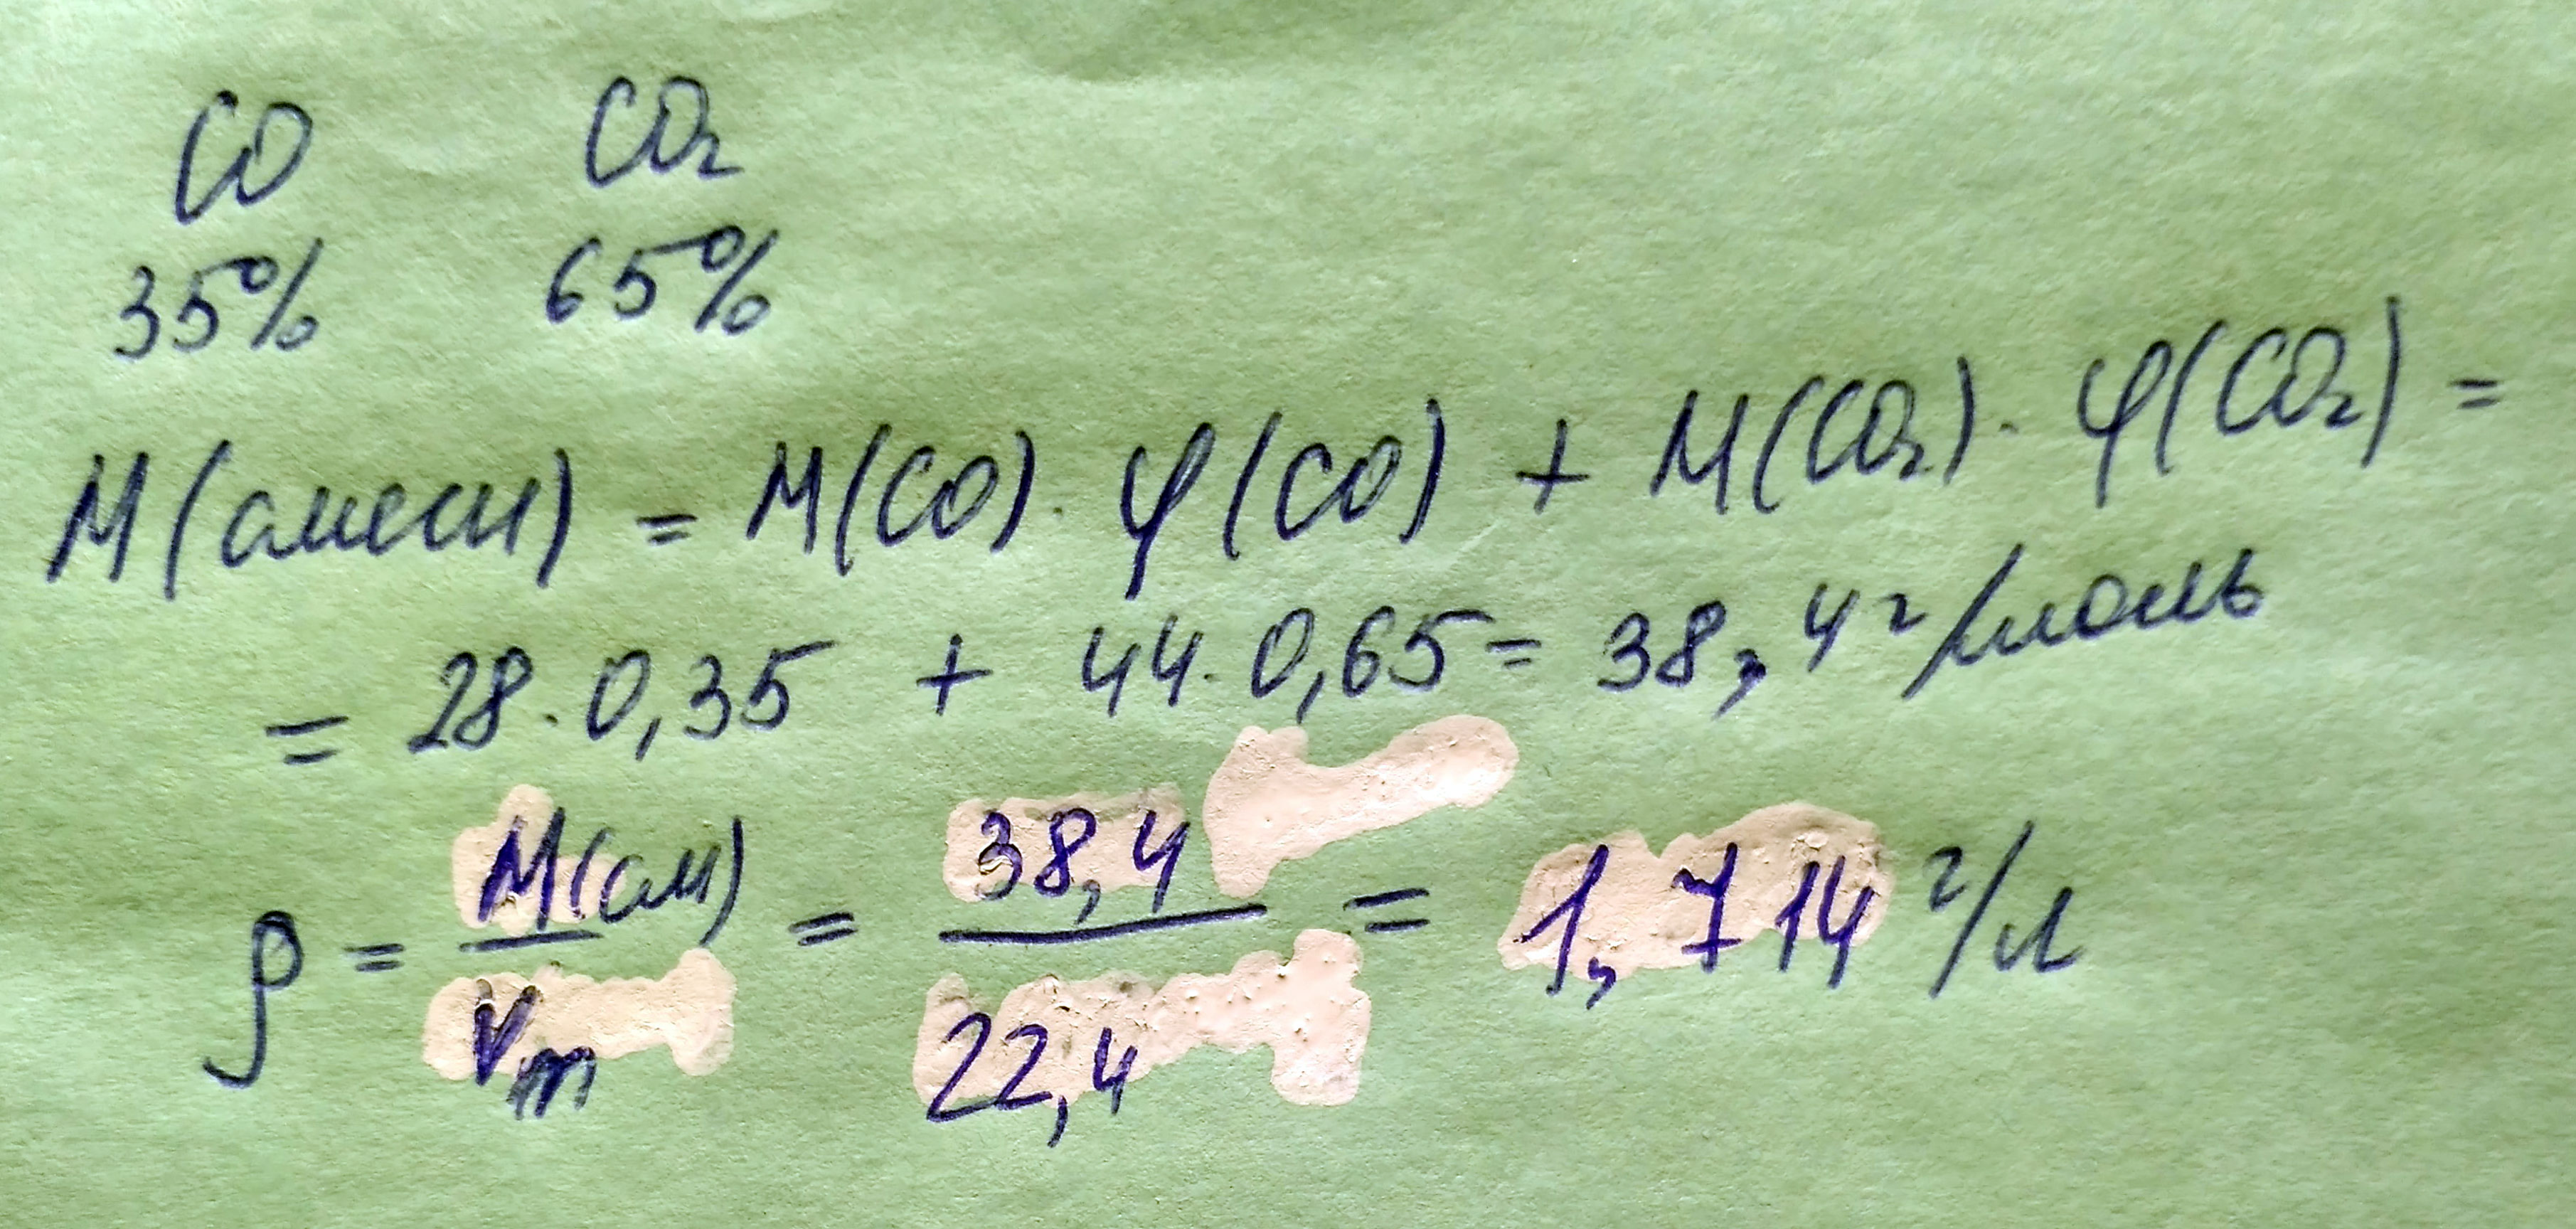 CO CO₂
35% 65%
M(смеси) = M(CO) · φ(CO) + M(CO₂) · φ(CO₂) =
= 28 · 0,35 + 44 · 0,65 = 38,4 г/моль
ρ = M(см)/Vm = 38,4/22,4 = 1,714 г/л